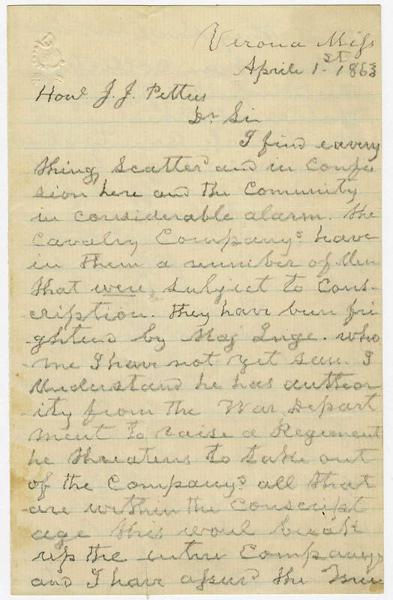 Verona Miss
April 1st 1863
Honl J. J. Pettus
Dr Sir
I find eavery
thing scatterd and in confu
sion here and the Comunity
in considerable alarm. the
Cavalry Companys have
in them a number of Men
that were subject to Cons-
cription. they have bun fri
-ghtend by Maj Inge. who
me I have not yet saw. I
understand he has author
ity from the War Depart
ment to raise a Regiment
he threatens to take out
of the Companys all that
are within the conscript
age this woul break
up the entire Companys
and I have assurd the